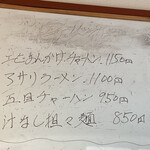 エビあんかけチャーハン 1150円
アサリラーメン 1100円
五目チャーハン 950円
汁なし担々麺 850円